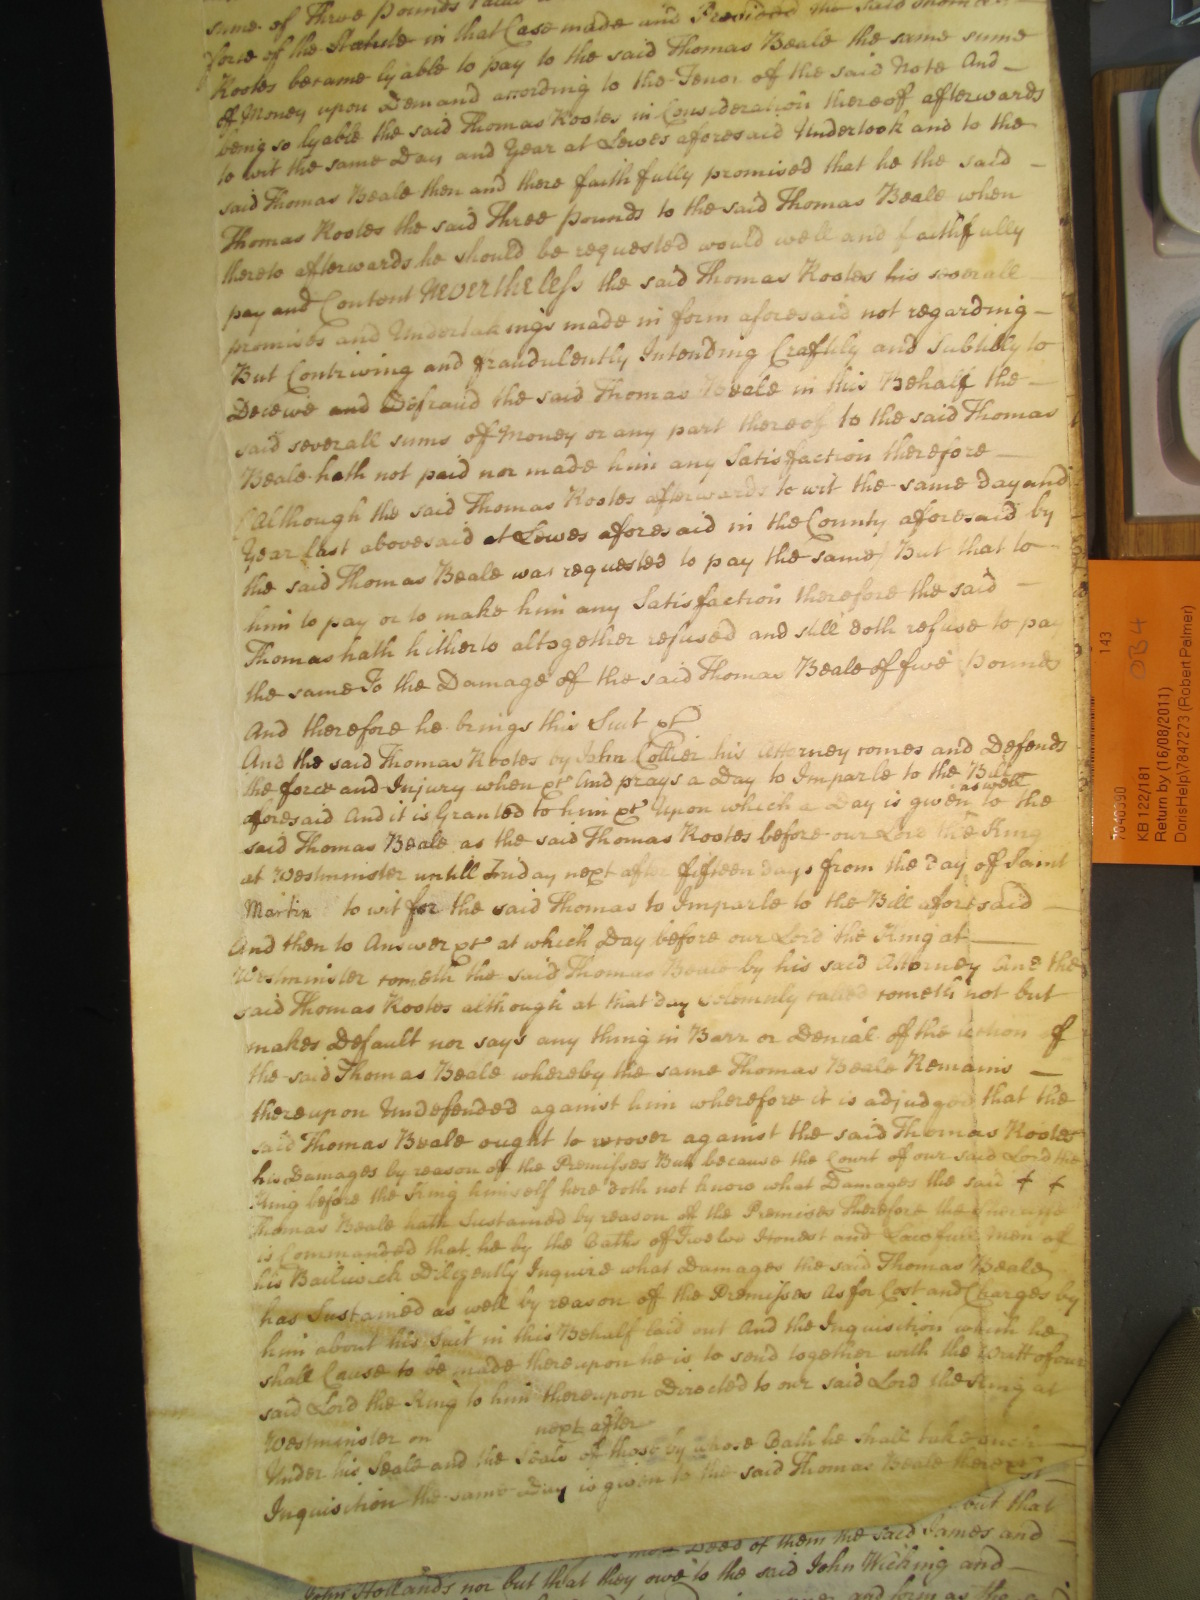 sume of Three pounds
force of the Statute in that Case made and Provided the said Thomas
Rootes became lyable to pay to the said Thomas Beale the same sume
of Money upon Demand according to the Tenor of the said Note And
being so lyable the said Thomas Rootes in Consideration thereof afterwards
to wit the same Day and Year at Lewes aforesaid Undertook and to the
said Thomas Beale then and there faithfully promised that he the said
Thomas Rootes the said Three pounds to the said Thomas Beale when
thereto afterwards he should be requested would well and faithfully
pay and Content Nevertheless the said Thomas Rootes his severall
promises and Undertakings made in form aforesaid not regarding
But Contriving and fraudulently Intending Craftily and Subtilly to
Deceive and Defraud the said Thomas Beale in this Behalf the
said severall sums of Money or any part thereof to the said Thomas
Beale hath not paid nor made him any Satisfaction therefore
(Although the said Thomas Rootes afterwards to wit the same day and
Year last abovesaid at Lewes aforesaid in the County aforesaid by
the said Thomas Beale was requested to pay the same) But that to
him to pay or to make him any Satisfaction therefore the said
Thomas hath hitherto altogether refused and still doth refuse to pay
the same To the Damage of the said Thomas Beale of five pounds
And therefore he brings this Suit &c
And the said Thomas Rootes by John Collier his Attorney comes and Defends
the force and Injury when &c And prays a Day to Imparle to the Bill
aforesaid And it is Granted to him &c Upon which a Day is given as well to the
said Thomas Beale as the said Thomas Rootes before our Lord the King
at Westminster untill Friday next after fifteen days from the day of Saint
Martin to wit for the said Thomas to Imparle to the Bill aforesaid
And then to Answer &c at which Day before our Lord the King at
Westminster cometh the said Thomas Beale by his said Attorney And the
said Thomas Rootes although at that day Solemnly called cometh not but
makes Default nor says any thing in Barr or Denial of the action of
the said Thomas Beale whereby the same Thomas Beale Remains
thereupon Undefended against him wherefore it is adjudged that the
said Thomas Beale ought to recover against the said Thomas Rootes
his Damages by reason of the Premisses But because the Court of our said Lord the
King before the King himself here doth not know what Damages the said
Thomas Beale hath Sustained by reason of the Premises Therefore the Sherriffe
is Commanded that he by the Oaths of Twelve Honest and Lawfull men of
his Bailiwick Diligently Inquire what Damages the said Thomas Beale
has Sustained as well by reason of the Premisses As for Cost and Charges by
him about his Suit in this Behalf laid out And the Inquisition which he
shall Cause to be made thereupon he is to send together with the Writt of our
said Lord the King to him thereupon Directed to our said Lord the King at
Westminster on next after
Under his Seale and the Seals of those by whose Oath he shall take such
Inquisition the same Day is given to the said Thomas Beale there &c
but that
of them the said James and
John Hollands nor but that they owe to the said John Wicking and
and form as the said
143
OB4
7840390
KB 122/181
Return by (16/08/2011)
DorisHelp\7847273 (Robert Palmer)